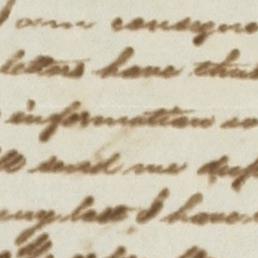 I am consigne
letters have thus
information
send me dup
my last I have